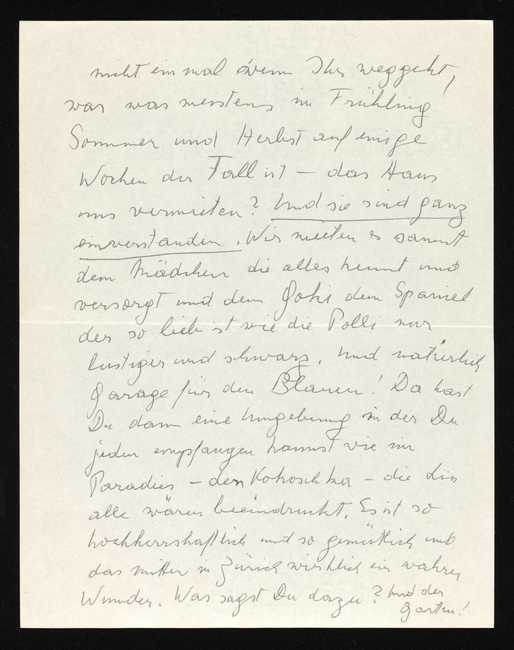 nicht einmal wenn Ihr weggeht,
was was meistens im Frühling
Sommer und Herbst auf einige
Wochen der Fall ist – das Haus
uns vermieten? Und sie sind ganz
einverstanden. Wir mieten es samt
dem Mädchen die alles kennt und
versorgt und dem Joki dem Spaniel
der so lieb ist wie die Polli nur
lustiger und schwarz. Und natürlich
Garage für den Blauen! Da hast
Du dann eine Umgebung in der Du
jeden empfangen kannst wie im
Paradies – den Kokoschka – die
alle wären beeindruckt. Es ist so
hochherrschaftlich und so gemütlich und
das mitten in Zürich wirklich ein wahres
Wunder. Was sagst Du dazu? Und der
Garten!